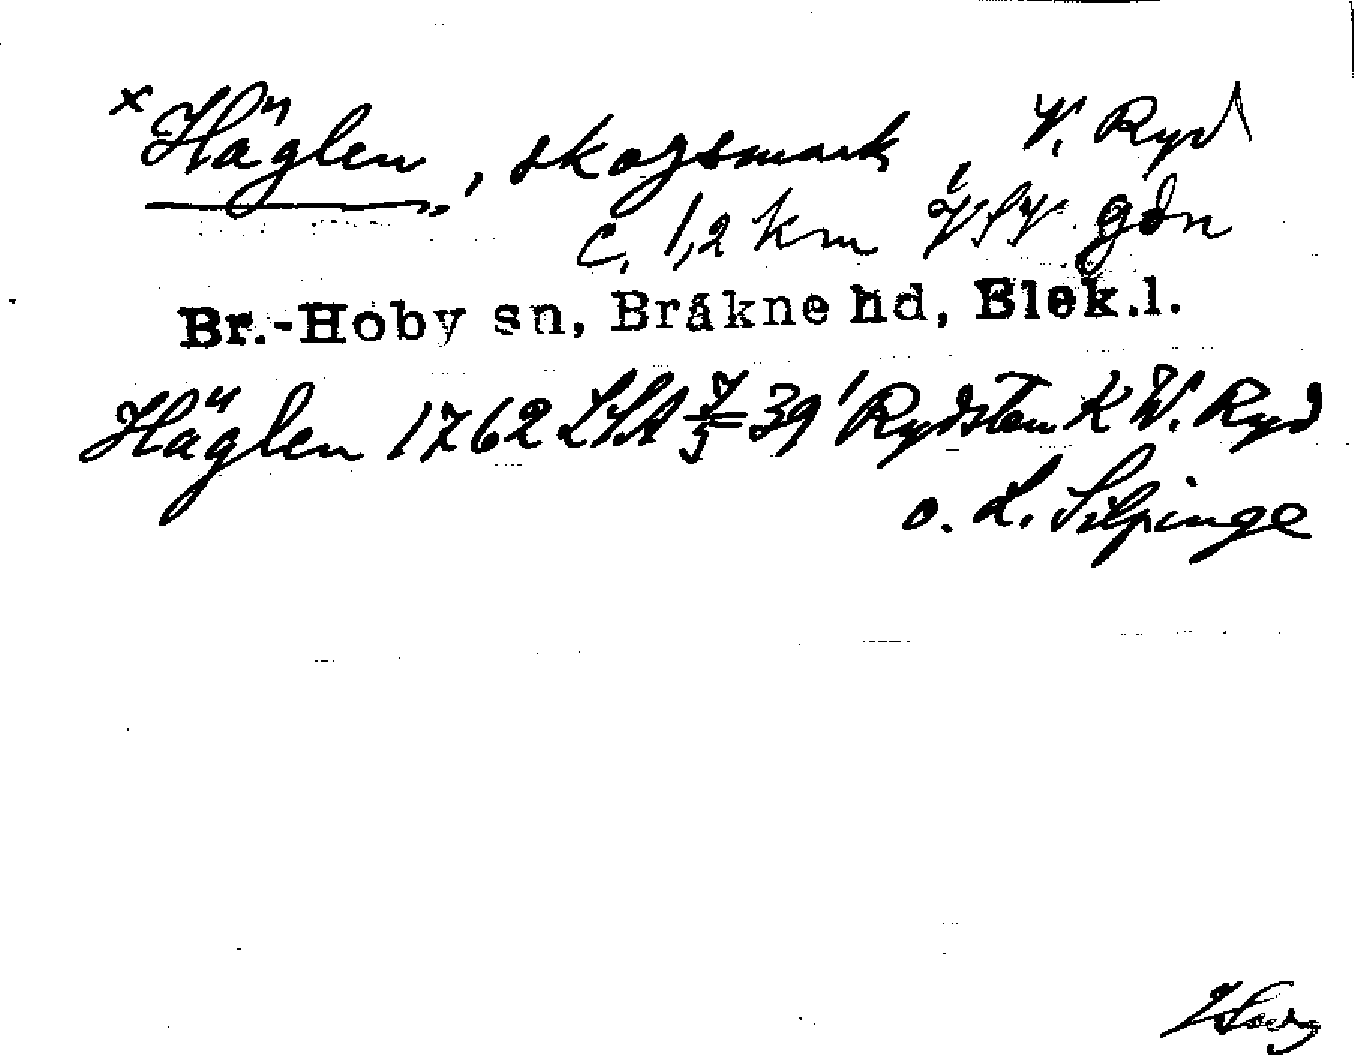 × Häglen, skogsmark, V. Ryd
c. 1,2 km VSV gdn
Br.-Hoby sn, Bräkne hd, Blek.l.
Häglen 1762 LSA 39' Rydsten K W. Ryd
o. L. Silpinge